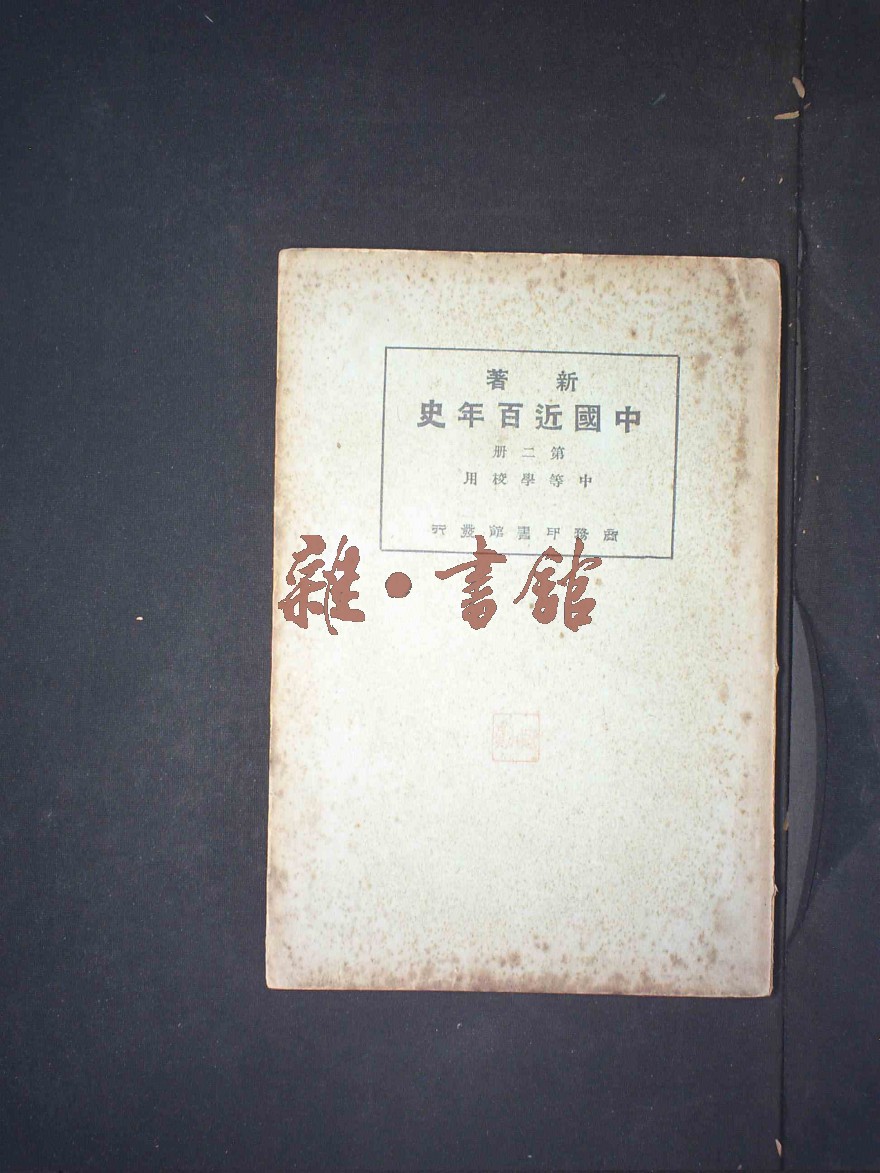 新著
中國近百年史
第二册
中等學校用
商務印書館發行
雜·書館